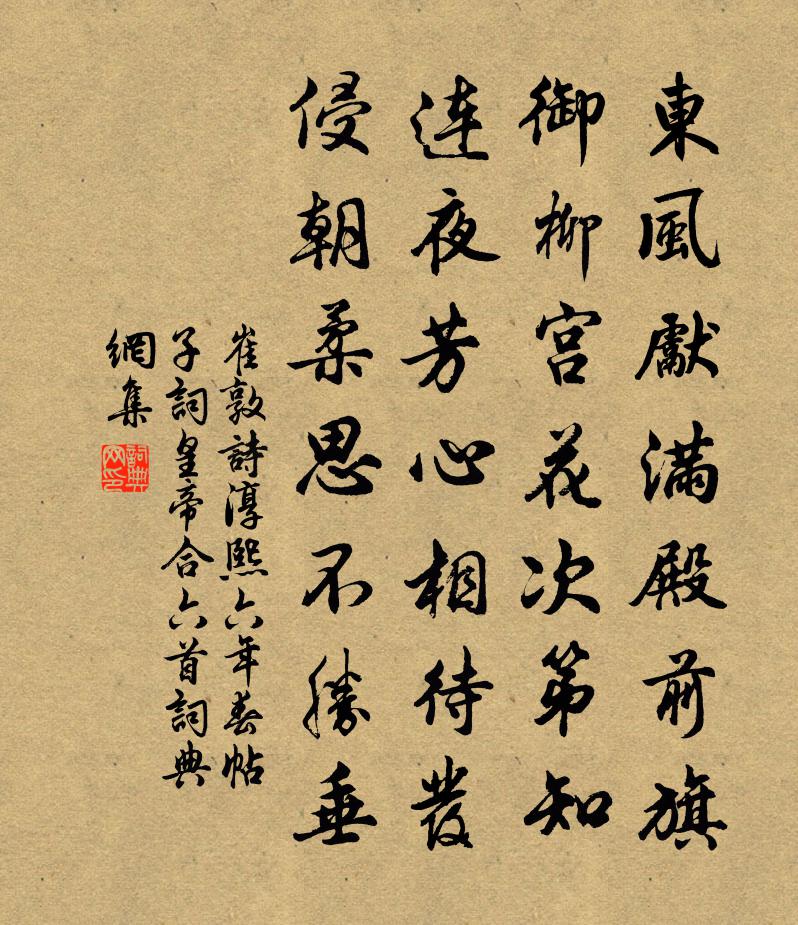 東風獻滿殿前旗
御柳宮花次第知
連夜芳心相待發
侵朝柔思不勝垂
崔敦詩淳熙六年春帖
子詞皇帝合六首詞典
網集
詞典
网印